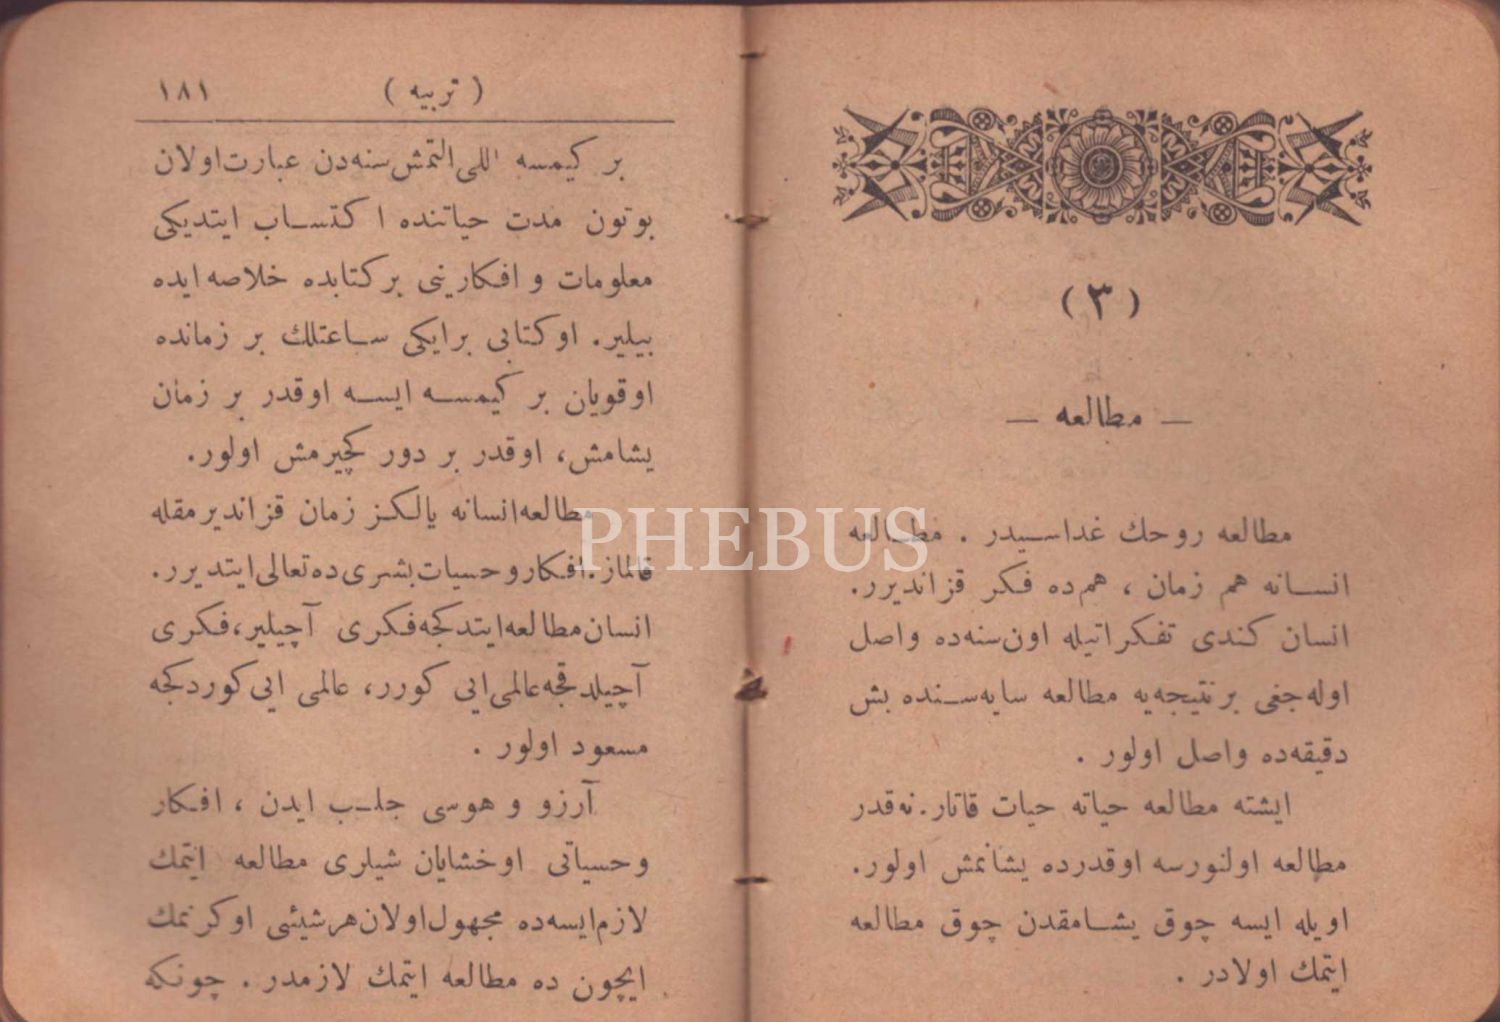 ( ٣ )
— مطالعه —
مطالعه روحك غداسیدر . مطالعه
انسانه هم زمان ، هم‌ده فكر قزاندیرر.
انسان كندی تفكراتیله اون‌سنه‌ده واصل
اوله‌جغی بر نتیجه‌یه مطالعه سایه‌سنده بش
دقیقه‌ده واصل اولور .
ایشته مطالعه حیاته حیات قاتار. نه‌قدر
مطالعه اولنورسه اوقدرده یشانمش اولور.
اویله ایسه چوق یشامقدن چوق مطالعه
ایتمك اولادر .
( تربیه ) ١٨١
بر كیمسه اللی التمش سنه‌دن عبارت اولان
بوتون مدت حیاتنده اكتساب ایتدیكی
معلومات و افكارینی بر كتابده خلاصه ایده
بیلیر. او كتابی بر ایكی ساعتلك بر زمانده
اوقویان بر كیمسه ایسه اوقدر بر زمان
یشامش، اوقدر بر دور كچیرمش اولور.
مطالعه انسانه یالكز زمان قزاندیرمقله
قالماز. افكار و حسیات بشری ده تعالی ایتدیرر.
انسان مطالعه ایتدكجه فكری آچیلیر، فكری
آچیلدقجه عالمی ایی كورر، عالمی ایی كوردكجه
مسعود اولور .
آرزو و هوسی جلب ایدن ، افكار
و حسیاتی اوخشایان شیلری مطالعه ایتمك
لازم ایسه‌ده مجهول اولان هر شیئی اوكرنمك
ایچون ده مطالعه ایتمك لازمدر . چونكه
PHEBUS